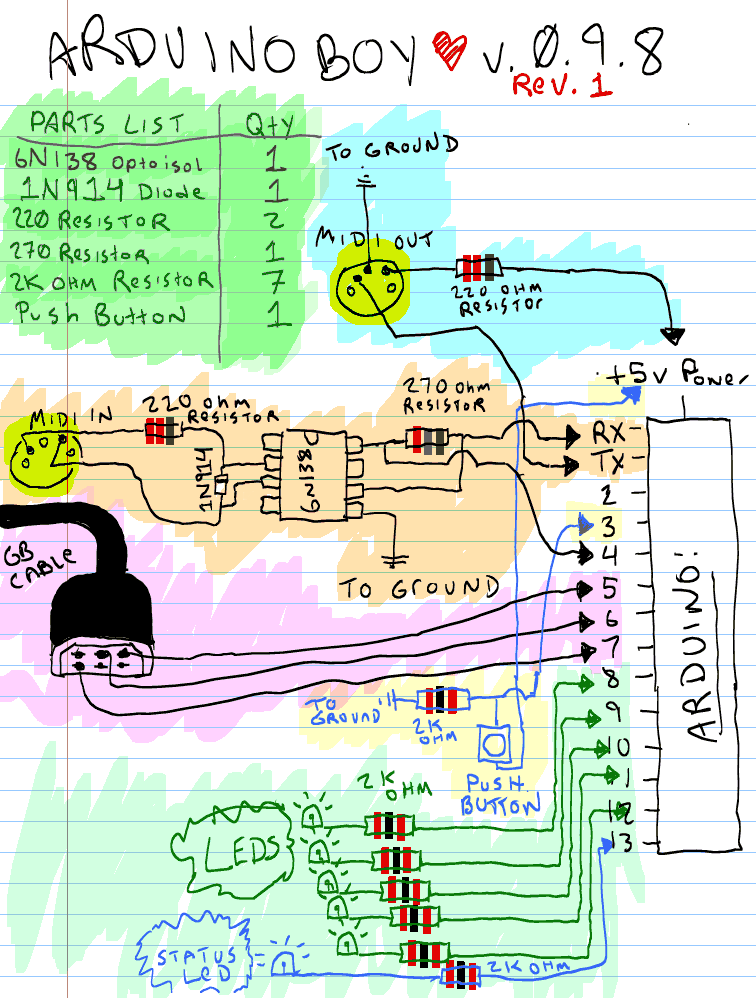 ARDUINOBOY v.0.9.8
Rev. 1
PARTS LIST Qty
6N138 Optoisol 1
1N914 Diode 1
220 Resistor 2
270 Resistor 1
2K OHM Resistor 7
Push Button 1
TO GROUND
MIDI OUT
220 OHM
Resistor
+5v Power
MIDI IN
220 ohm
Resistor
270 ohm
Resistor
1N914
6N138
TO GROUND
RX
TX
2
3
4
5
6
7
8
9
10
11
12
13
ARDUINO:
GB
CABLE
TO
GROUND
2K
OHM
PUSH
BUTTON
2K
OHM
LEDS
STATUS
LED
2K OHM